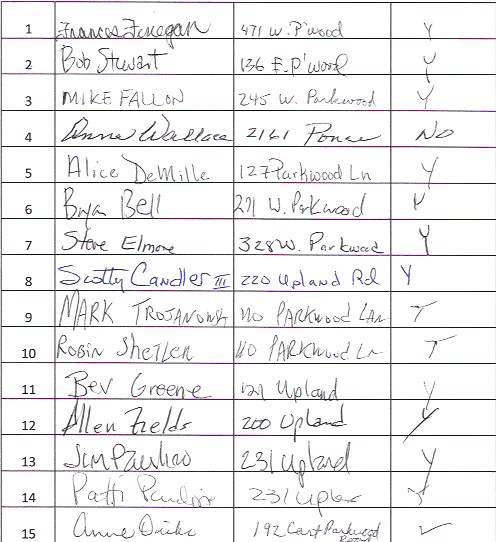 1 Frances Finegan 471 W. P'wood Y
2 Bob Stewart 136 E. P'wood Y
3 MIKE FALLON 245 W. Parkwood Y
4 Anne Wallace 2161 Ponce No
5 Alice DeMille 127 Parkwood Ln Y
6 Bryan Bell 271 W. Parkwood Y
7 Steve Elmore 328 W. Parkwood Y
8 Scotty Candler III 220 Upland Rd Y
9 MARK TROJANOWSKI 110 PARKWOOD LAN T
10 ROBIN SHETLER 110 PARKWOOD Ln T
11 Bev Greene 121 Upland Y
12 Allen Fields 200 Upland Y
13 Jim 231 Upland Y
14 Patti 231 Y
15 Anne 192 East Parkwood Road ✓